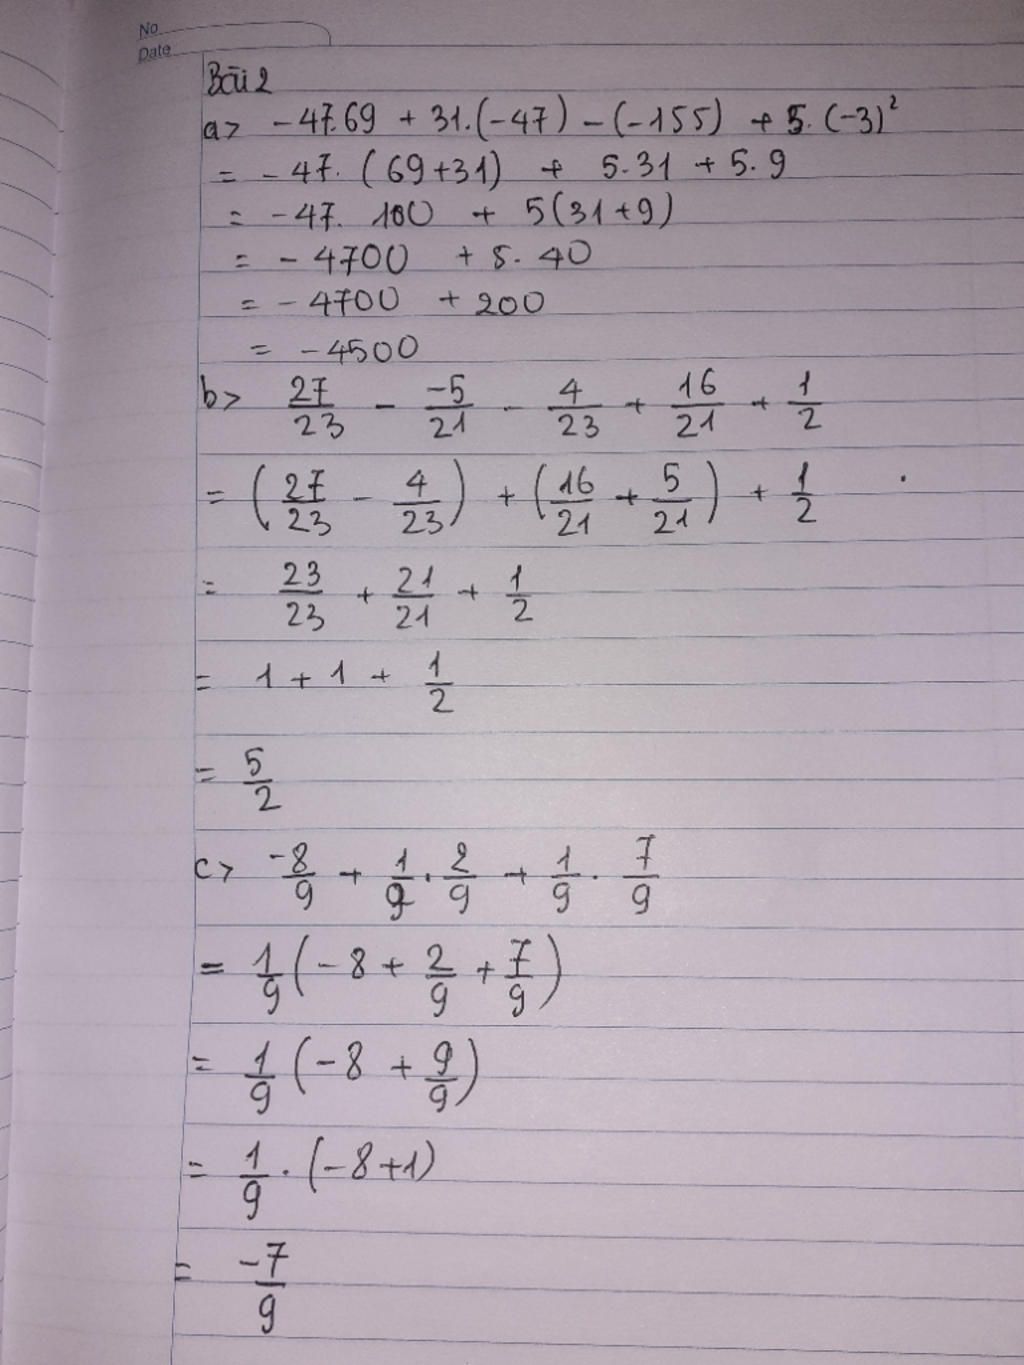 No
Date
Bài 2
a> -47.69 + 31.(-47) - (-155) + 5.(-3)²
= -47.(69+31) + 5.31 + 5.9
= -47. 100 + 5(31+9)
= -4700 + 5.40
= -4700 + 200
= -4500
b> 27/23 - -5/21 - 4/23 + 16/21 + 1/2
= (27/23 - 4/23) + (16/21 + 5/21) + 1/2
= 23/23 + 21/21 + 1/2
= 1 + 1 + 1/2
= 5/2
c> -8/9 + 1/9 . 2/9 + 1/9 . 7/9
= 1/9 (-8 + 2/9 + 7/9)
= 1/9 (-8 + 9/9)
= 1/9 . (-8+1)
= -7/9